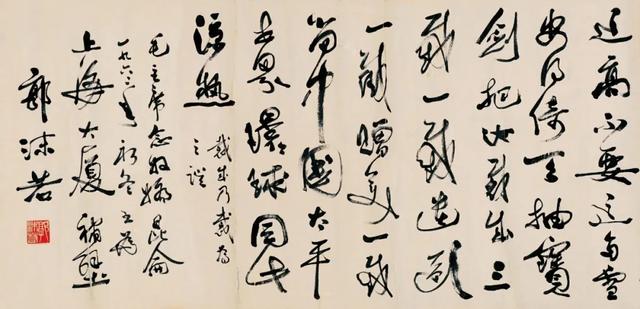 这高不要这多雪
安得倚天抽寶
剑把汝裁成三
截一截遗欧
一截赠美一截
留中國太平
世界環球同此
凉热
裁成乃裁为
之误
毛主席念奴娇昆仑
一九六二年初冬书为
上海大厦補壁
郭沫若